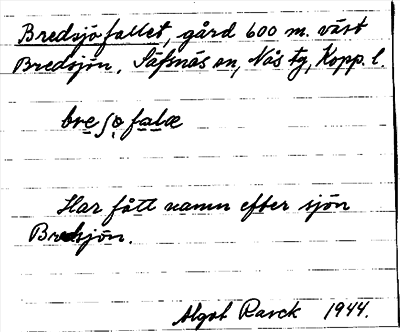 Bredsjöfallet, gård 600 m. väst
Bredsjön, Säfsnäs sn, Näs tg, Kopp. l.
bre ʃo falæ
Har fått namn efter sjön
Bredsjön.
Algot Rarck 1944.